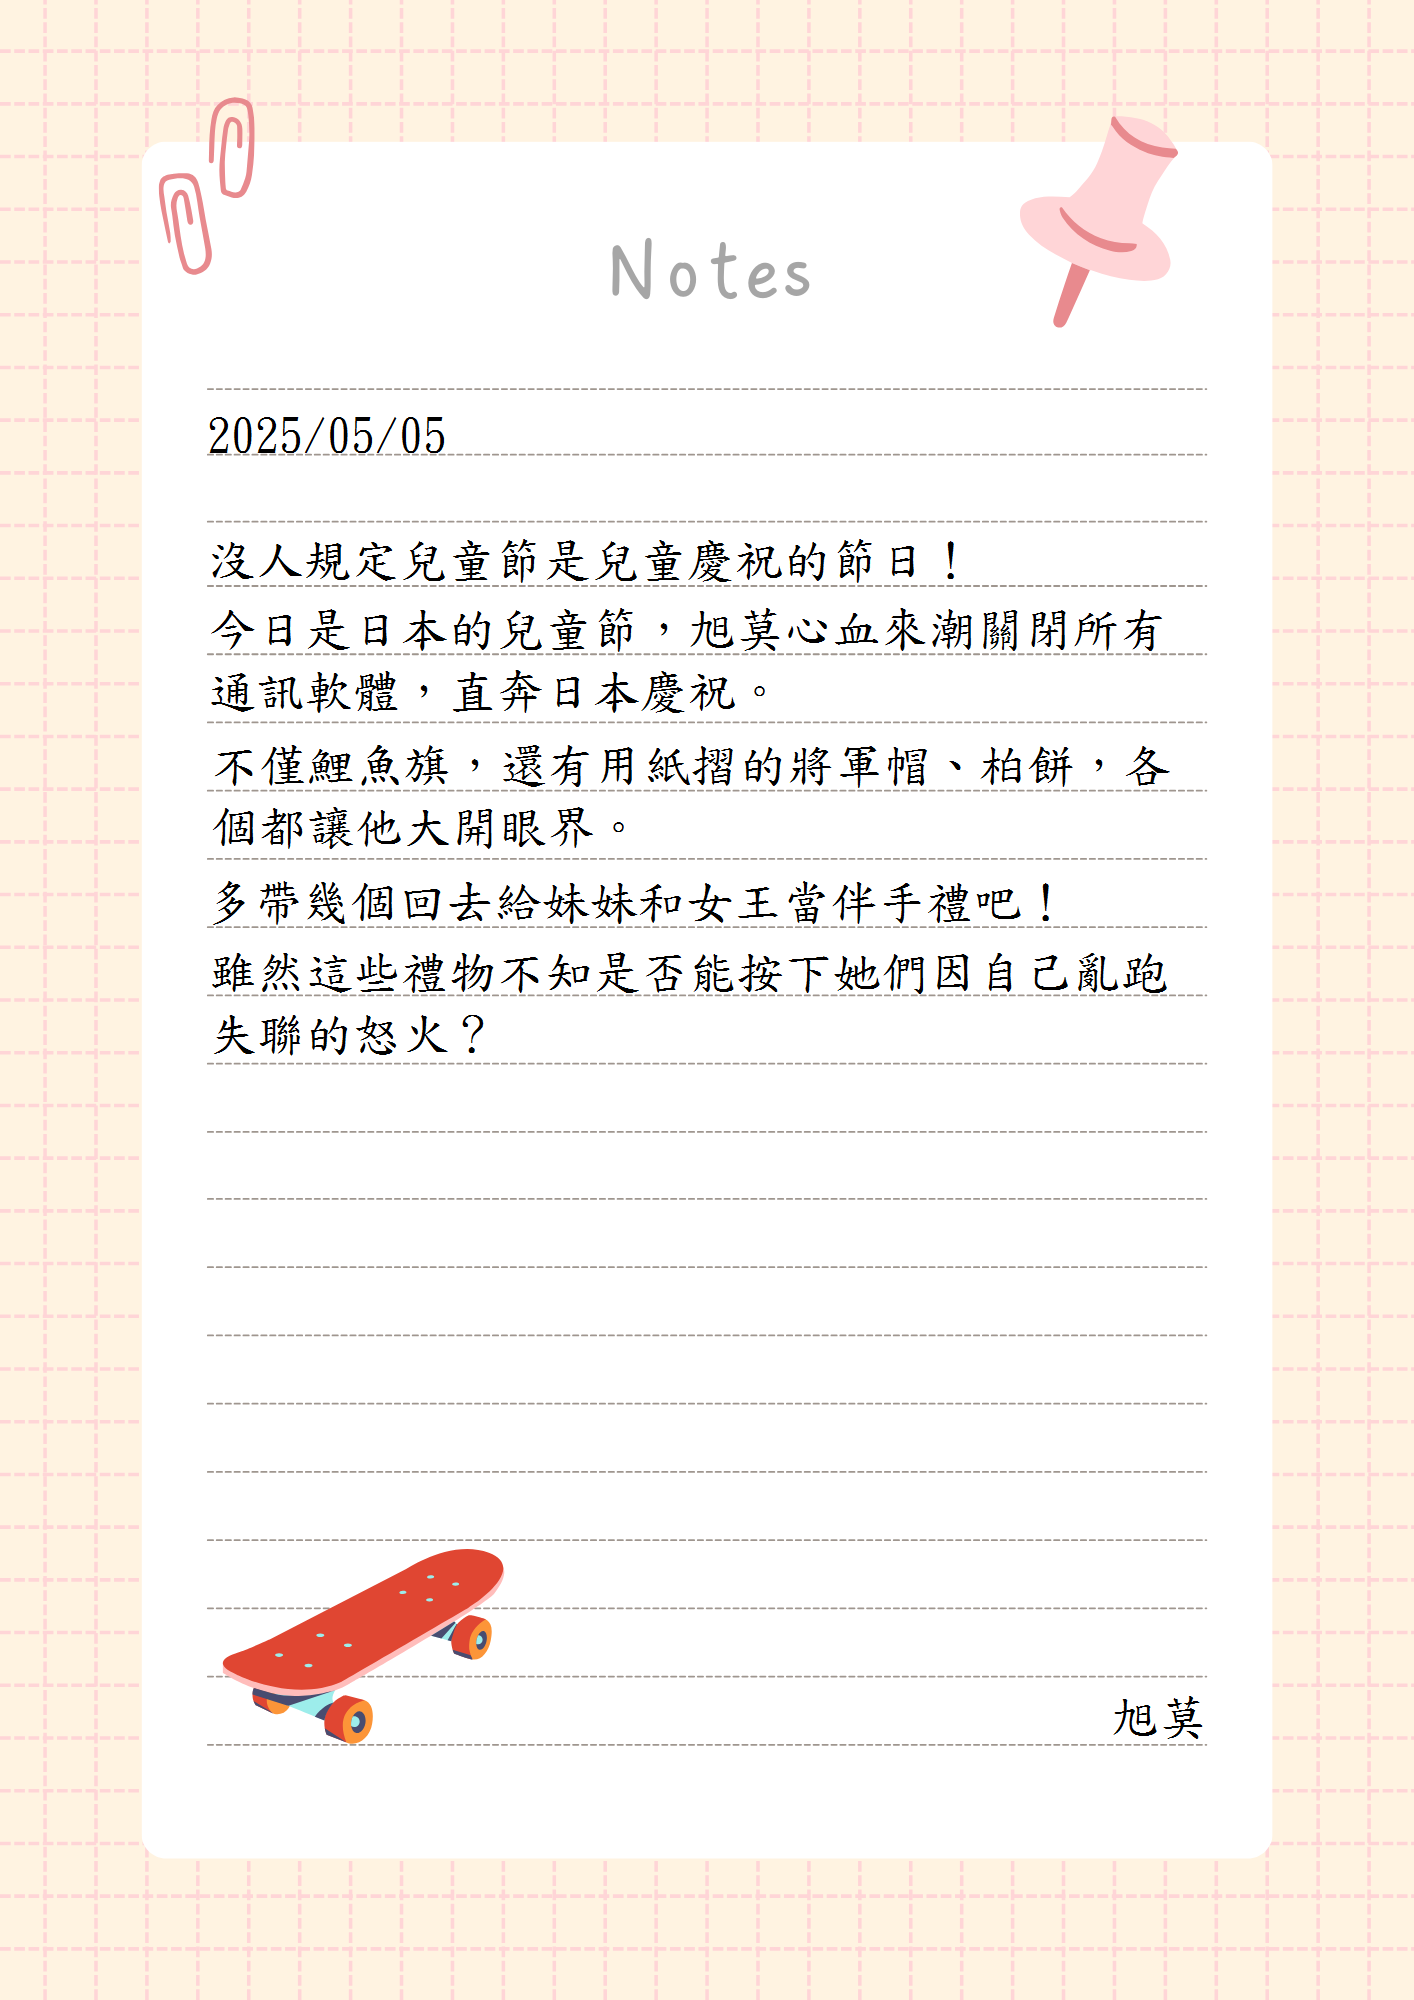 Notes
2025/05/05
沒人規定兒童節是兒童慶祝的節日！
今日是日本的兒童節，旭莫心血來潮關閉所有
通訊軟體，直奔日本慶祝。
不僅鯉魚旗，還有用紙摺的將軍帽、柏餅，各
個都讓他大開眼界。
多帶幾個回去給妹妹和女王當伴手禮吧！
雖然這些禮物不知是否能按下她們因自己亂跑
失聯的怒火？
旭莫